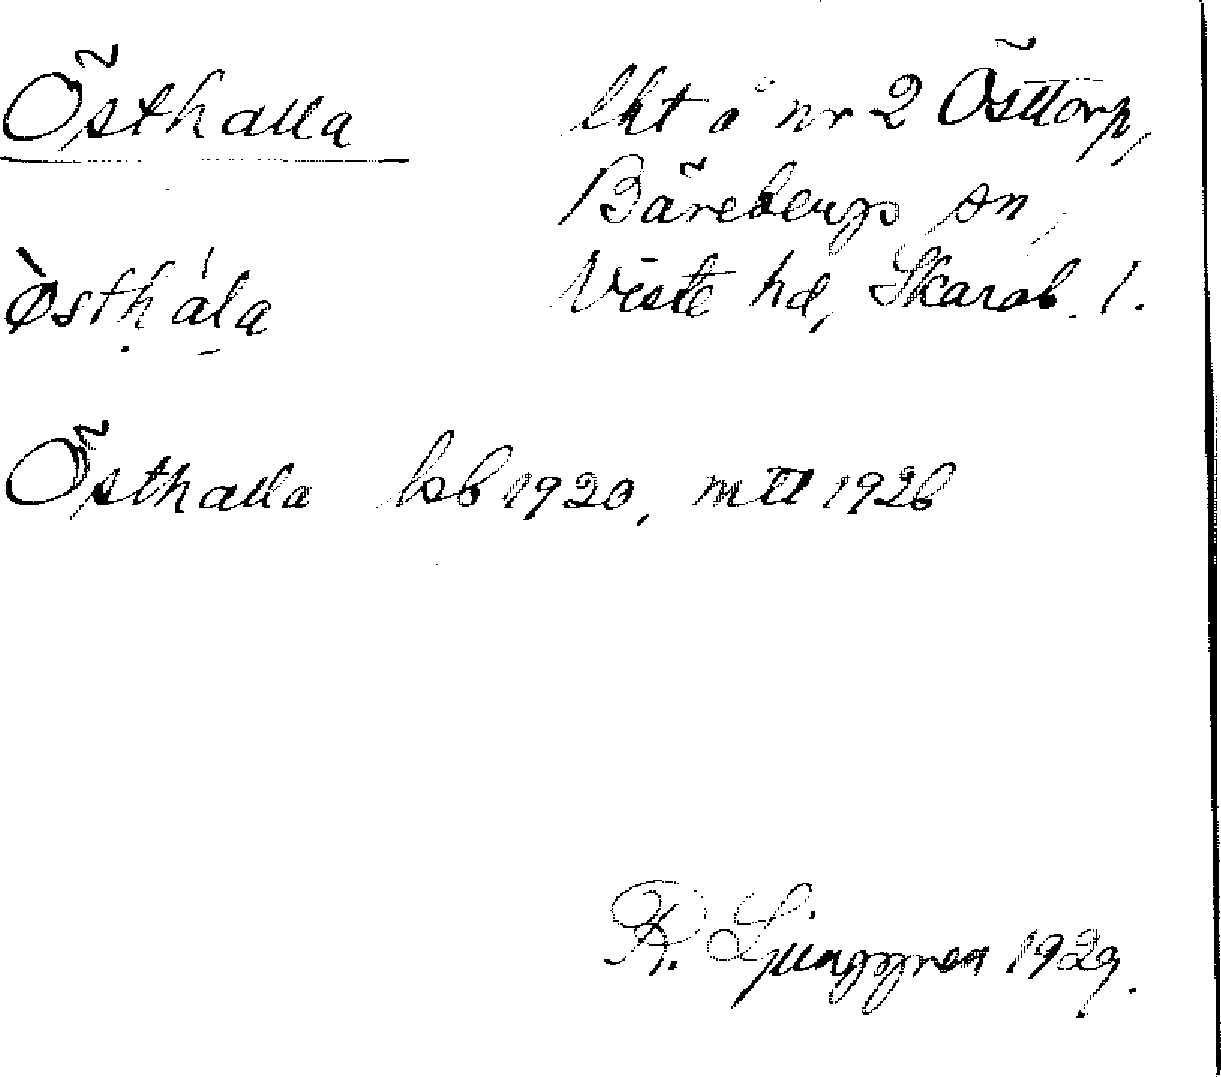 Östhalla
lht å nr 2 Östtorp,
Bärebergs sn,
Viste hd, Skarab. l.
Östhalla hsb 1920, mtl 1926
R. Ljunggren 1929.